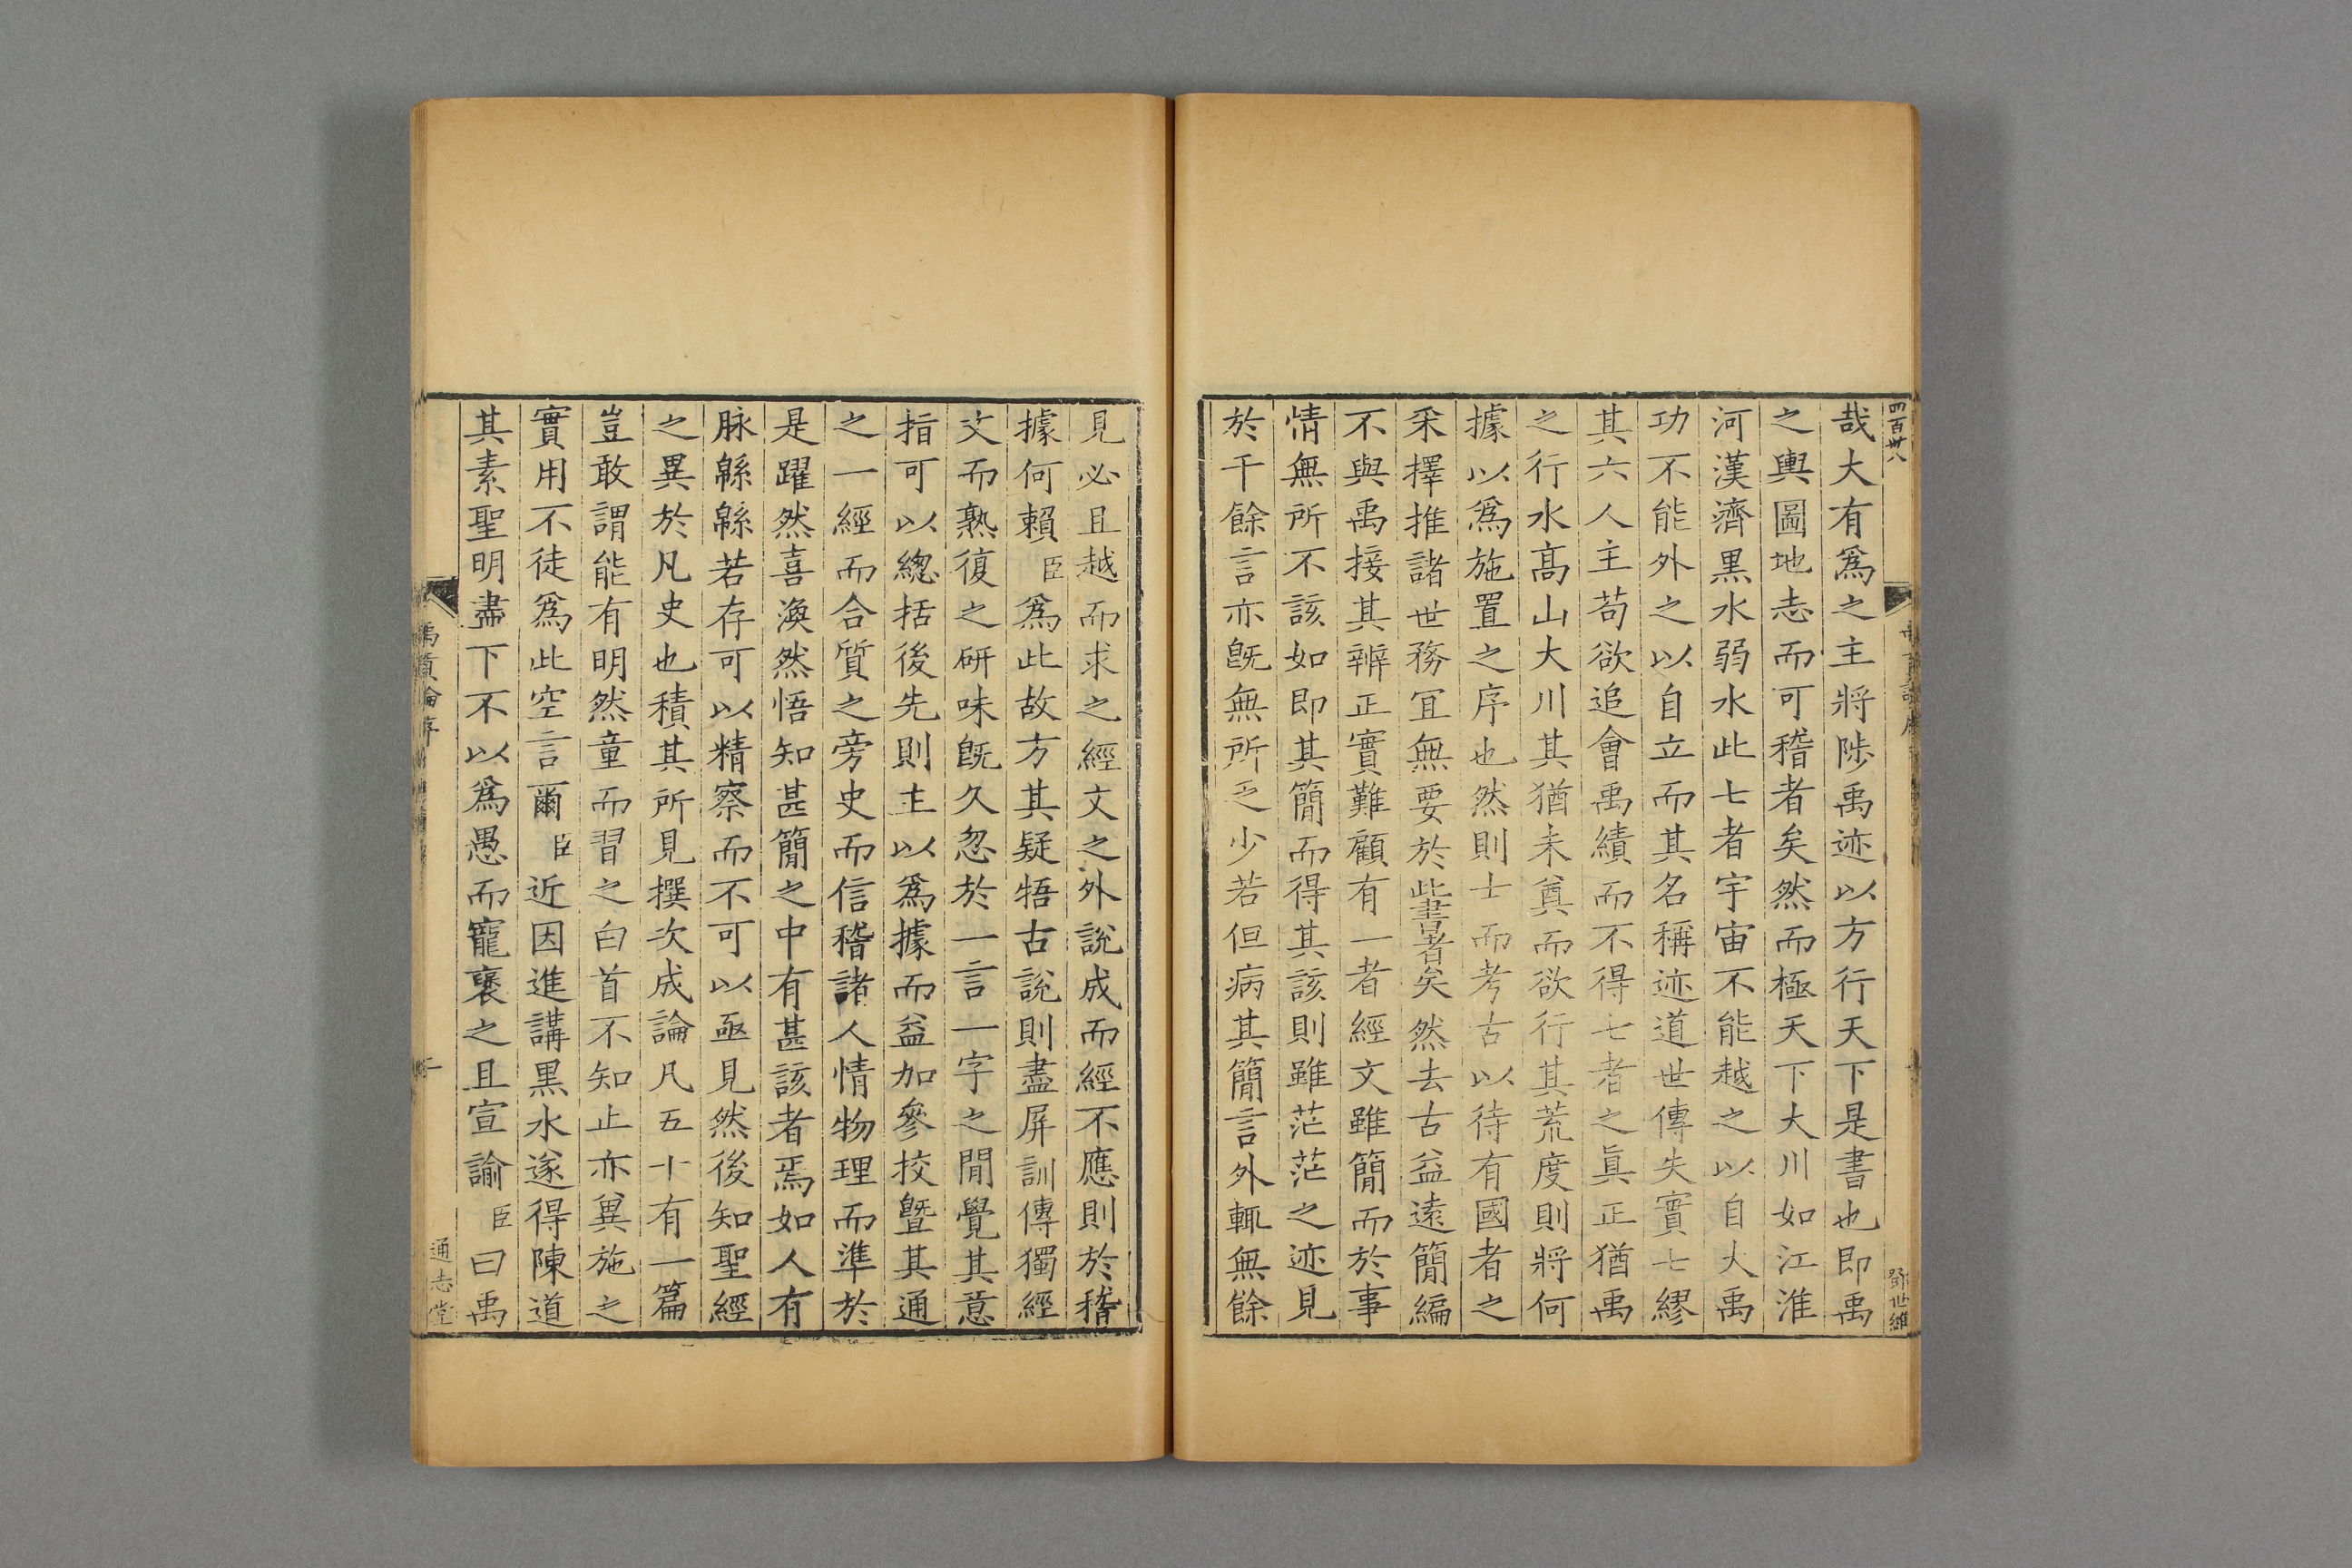 四百卅八
哉大有爲之主將陟禹迹以方行天下是書也即禹
之輿圖地志而可稽者矣然而極天下大川如江淮
河漢濟黒水弱水此七者宇宙不能越之以自大禹
功不能外之以自立而其名稱迹道世傳失實七繆
其六人主苟欲追會禹績而不得七者之眞正猶禹
之行水髙山大川其猶未奠而欲行其荒度則將何
據以爲施置之序也然則士而考古以待有國者之
采擇推諸世務冝無要於此書者矣然去古益遠簡編
不與禹接其辨正實難顧有一者經文雖簡而於事
情無所不該如即其簡而得其該則雖茫茫之迹見
於千餘言亦旣無所乏少若但病其簡言外輒無餘
鄧世維
見必且越而求之經文之外說成而經不應則於稽
據何賴臣爲此故方其疑牾古說則盡屏訓傳獨經
文而熟復之研味旣久忽於一言一字之閒覺其意
指可以總括後先則主以爲據而益加參挍曁其通
之一經而合質之旁史而信稽諸人情物理而準於
是躍然喜渙然悟知甚簡之中有甚該者焉如人有
脉緜緜若存可以精察而不可以亟見然後知聖經
之異於凡史也積其所見撰次成論凡五十有一篇
豈敢謂能有明然童而習之白首不知止亦兾施之
實用不徒爲此空言爾臣近因進講黒水遂得陳道
其素聖明盡下不以爲愚而寵襃之且宣諭臣曰禹
禹貢論序
二
通志堂